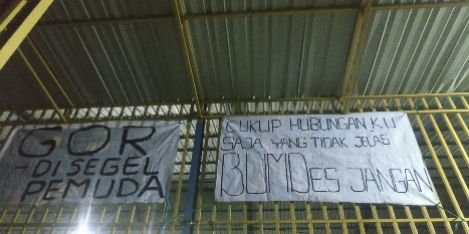 GOR
-DISEGEL
PEMUDA
CUKUP HUBUNGAN KU
SAJA YANG TIDAK JELAS
BUMDes JANGAN